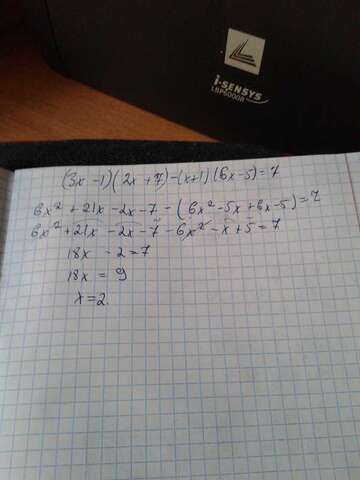 i-SENSYS
LBP6000B
(3x -1)(2x +7)-(x+1)(6x-5)=7
6x² +21x -2x-7 - (6x²-5x+6x-5)=7
6x²+21x -2x-7-6x²-x+5=7
18x -2=7
18x = 9
x=2